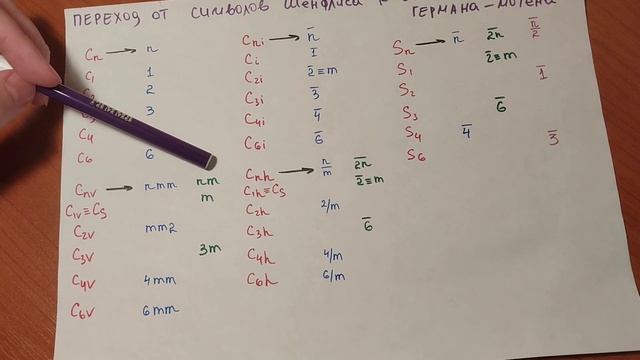 ПЕРЕХОД ОТ СИМВОЛОВ ШЕНФЛИСА ГЕРМАНА-МОГЕНА
Cn → n
C1 1
2
3
C4
C6 6
Cnv → nmm nm
C1v ≡ Cs m
C2v mm2
C3v 3m
C4v 4mm
C6v 6mm
Cni → n̅
Ci 1̅
C2i 2̅ ≡ m
C3i 3̅
C4i 4̅
C6i 6̅
Cnh → n/m 2̅n̅
C1h ≡ Cs 2̅ ≡ m
C2h 2/m
C3h 6̅
C4h 4/m
C6h 6/m
Sn → n̅ 2̅n̅ n̅/2
S1 2̅ ≡ m
S2 1̅
S3 6̅
S4 4̅
S6 3̅